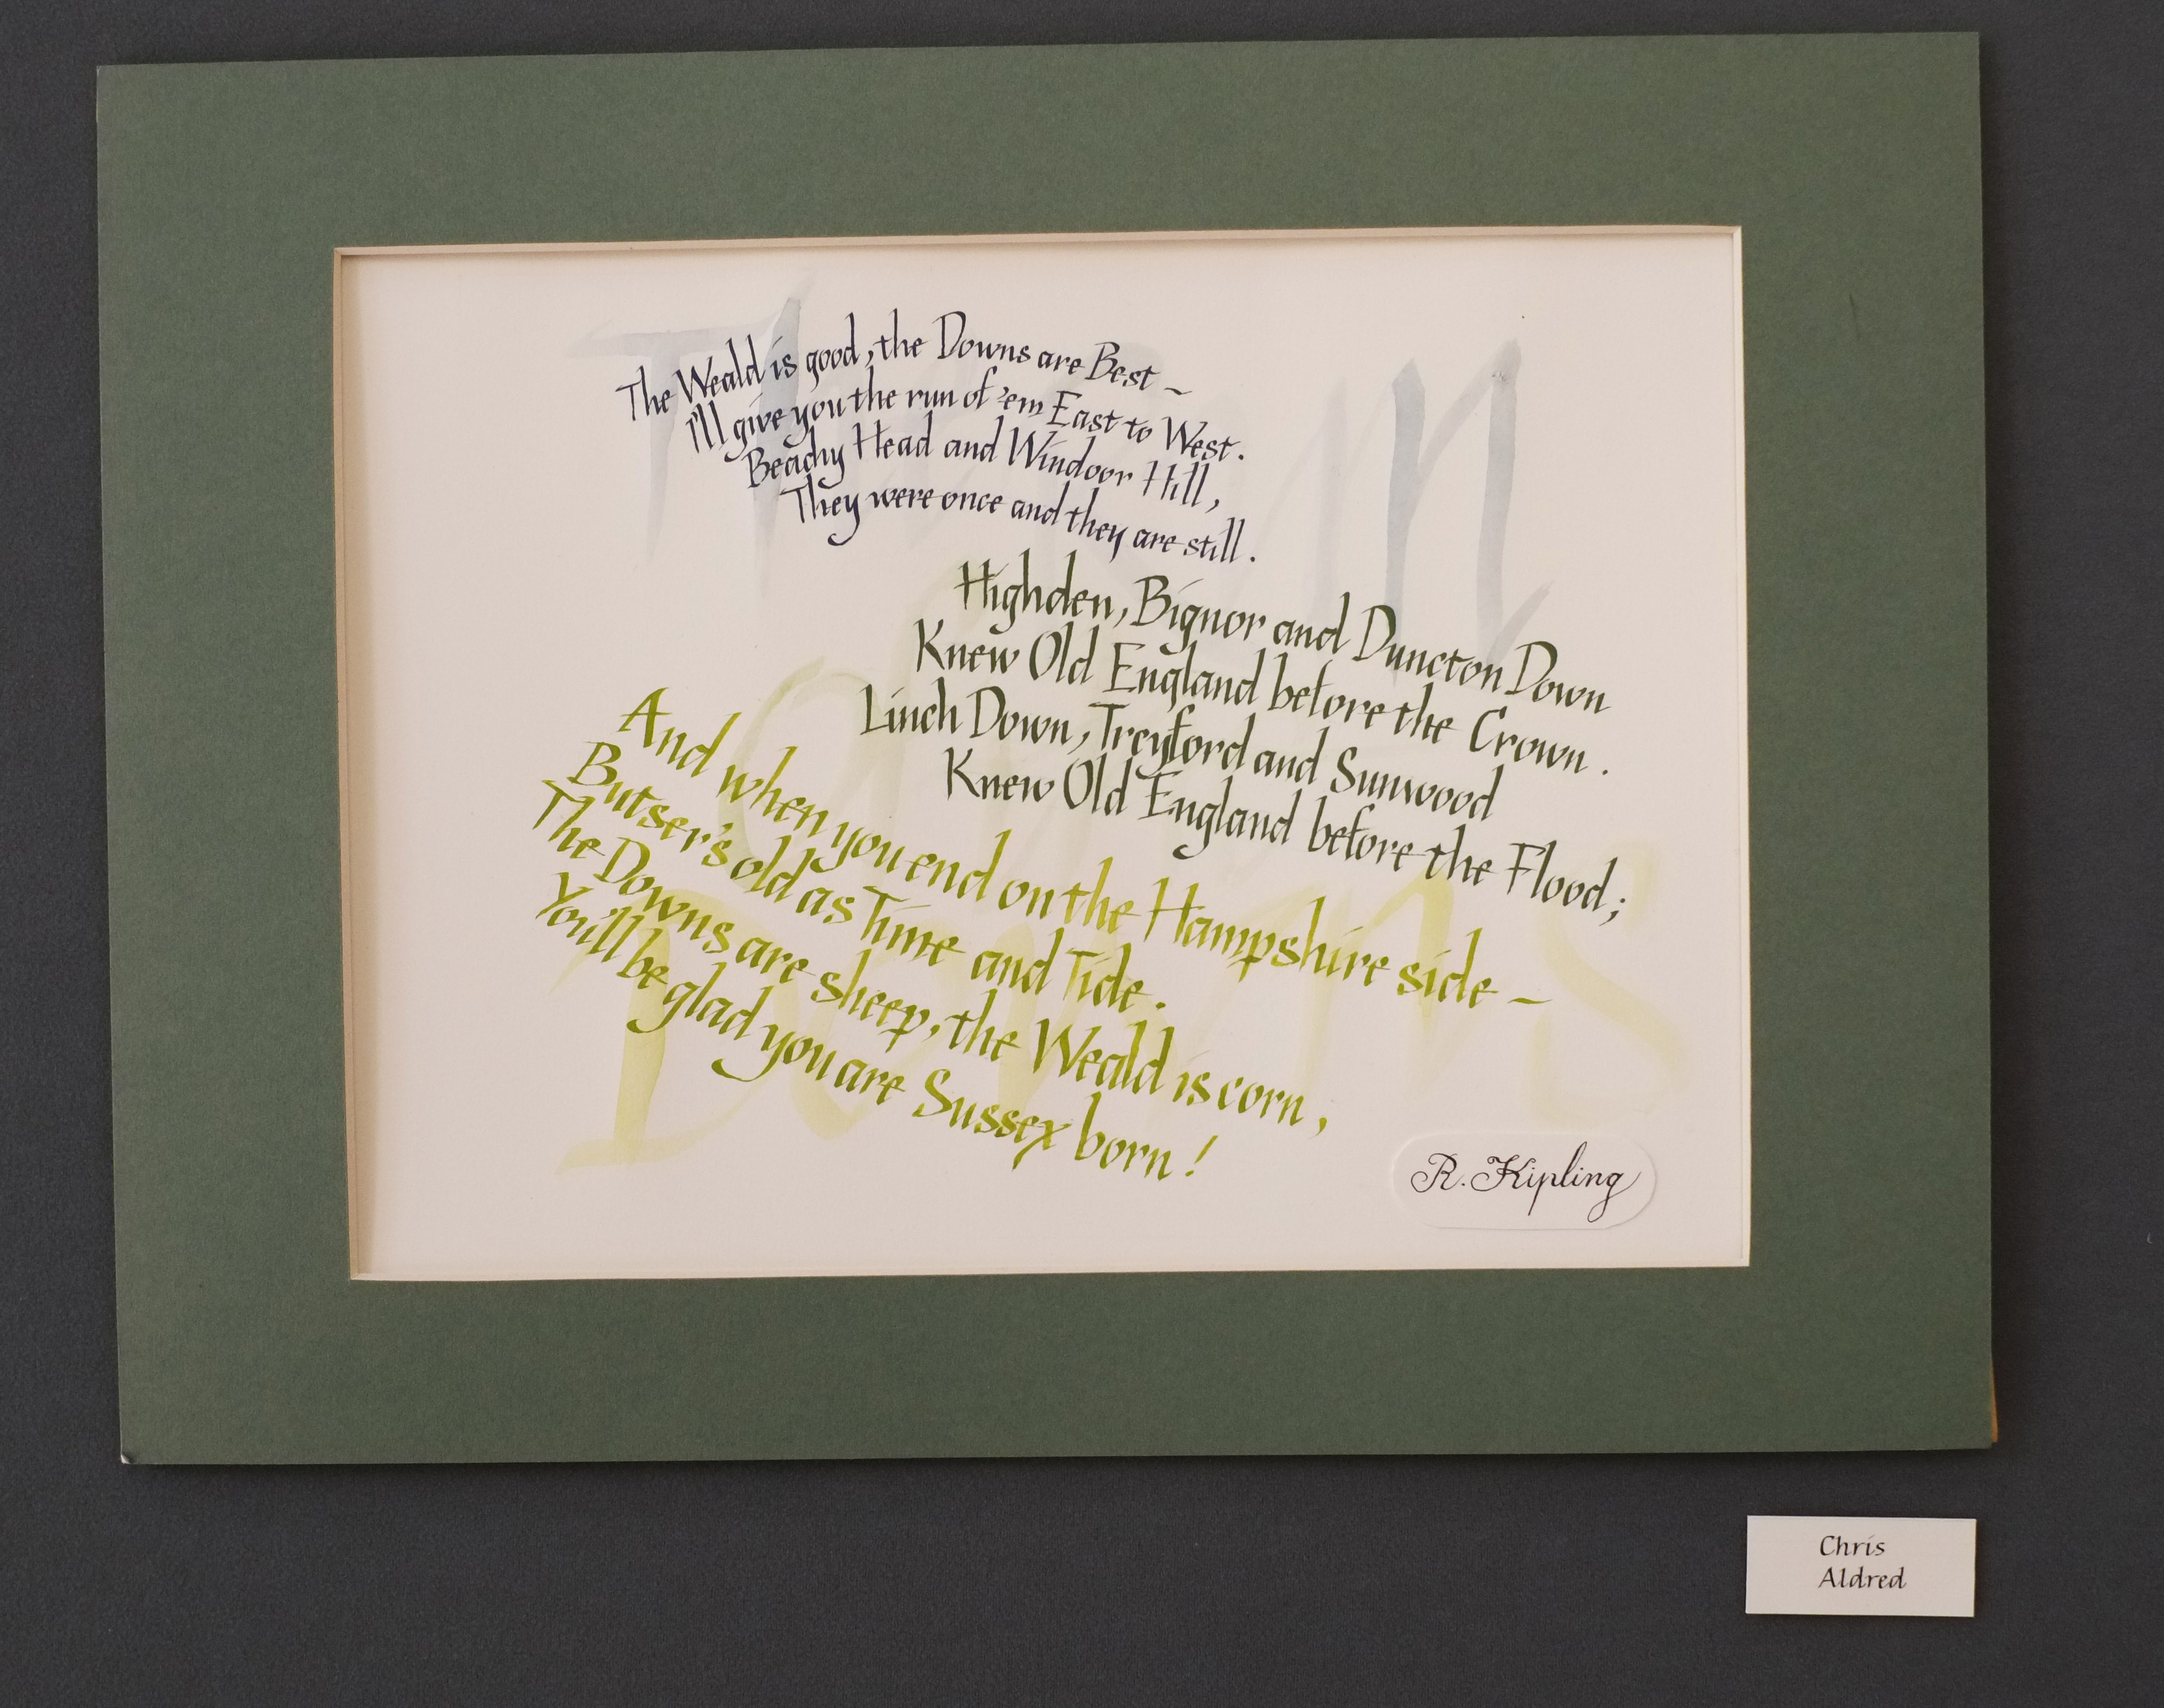 The Weald is good, the Downs are Best –
I'll give you the run of 'em East to West.
Beachy Head and Windoor Hill,
They were once and they are still.
Highden, Bignor and Duncton Down
Knew Old England before the Crown.
Linch Down, Treyford and Sunwood
Knew Old England before the Flood;
And when you end on the Hampshire side –
Butser's old as Time and Tide.
The Downs are sheep, the Weald is corn,
You'll be glad you are Sussex born!
R. Kipling
Chris
Aldred